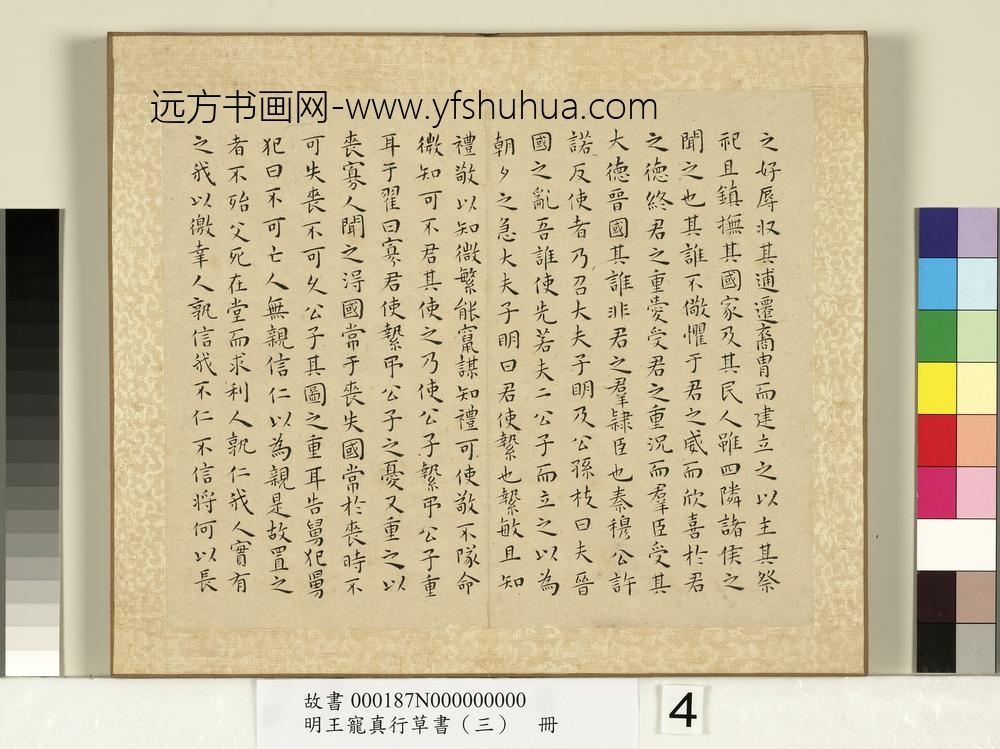 远方书画网-www.yfshuhua.com
之好辱収其逋遷裔冑而建立之以主其祭
祀且鎮撫其國家及其民人雖四隣諸侯之
聞之也其誰不儆懼于君之威而欣喜於君
之德終君之重愛受君之重況而羣臣受其
大德晉國其誰非君之羣隸臣也秦穆公許
諾反使者乃召大夫子明及公孫枝曰夫晉
國之亂吾誰使先若夫二公子而立之以為
朝夕之急大夫子明曰君使縶也縶敏且知
禮敬以知微繁能竄謀知禮可使敬不隊命
微知可不君其使之乃使公子縶弔公子重
耳于翟曰寡君使縶弔公子之憂又重之以
喪寡人聞之淂國常于喪失國常於喪時不
可失喪不可久公子其圖之重耳告舅犯舅
犯曰不可亡人無親信仁以為親是故置之
者不殆父死在堂而求利人孰仁我人實有
之我以徼幸人孰信我不仁不信将何以長
故書 000187N000000000
明王寵真行草書（三） 冊
4